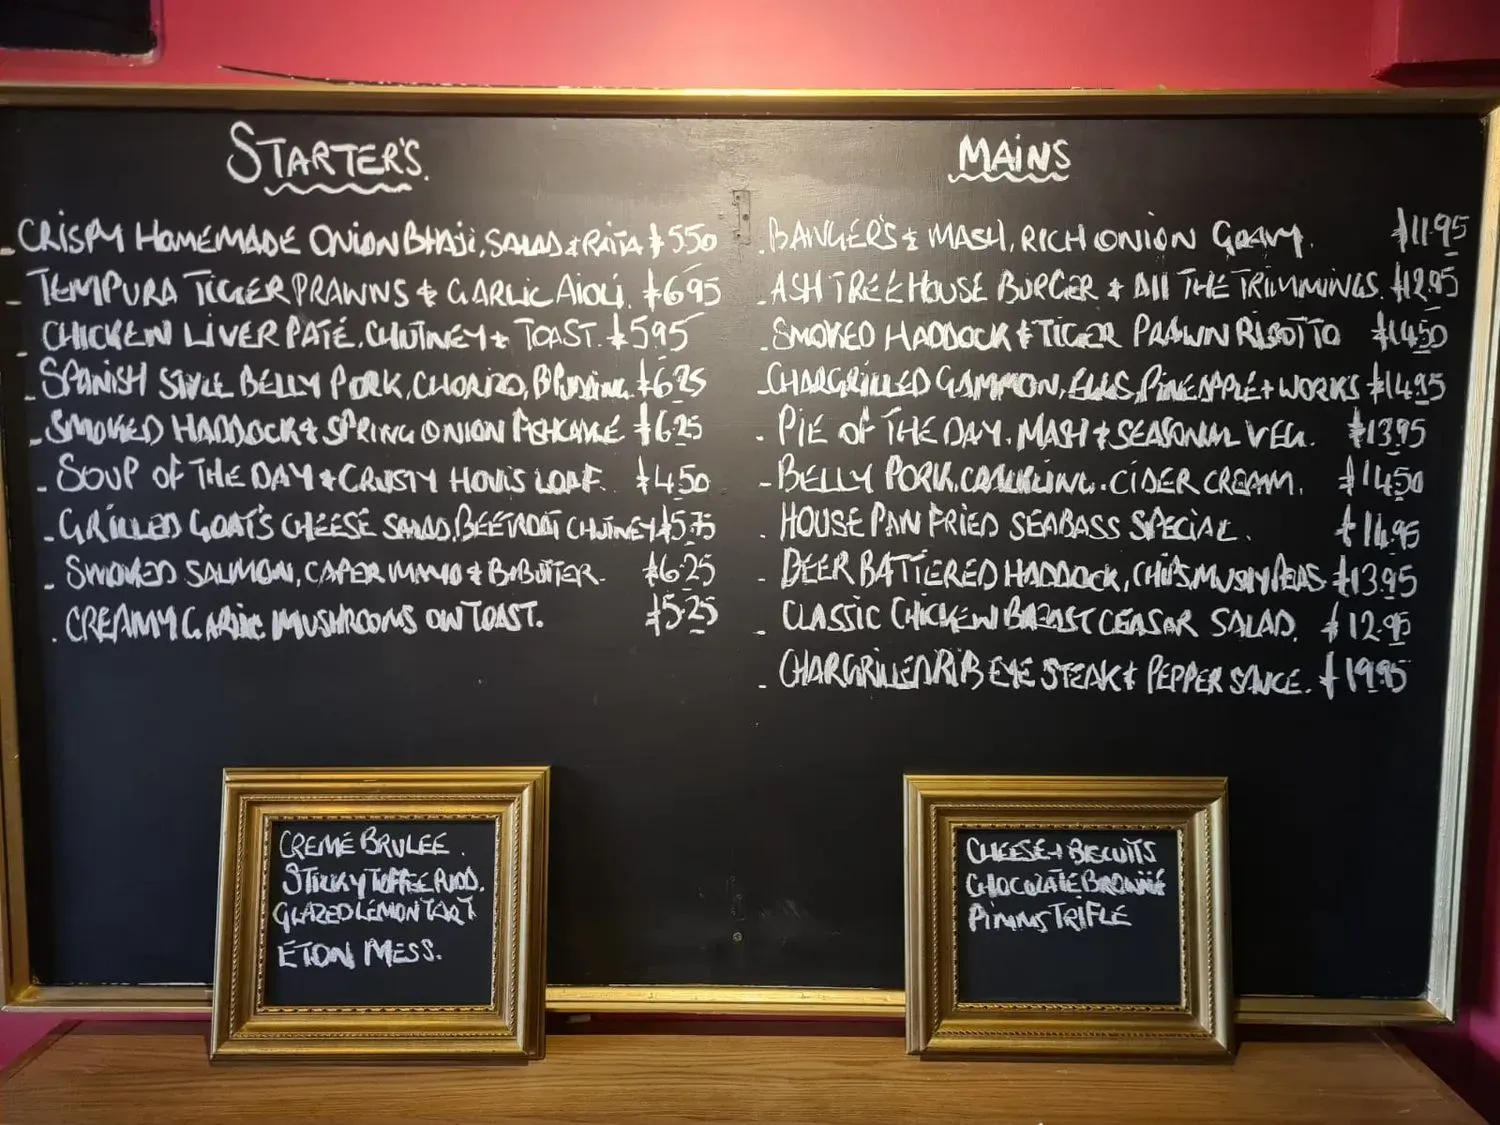 STARTER'S.
- CRISPY HOMEMADE ONION BHAJI, SALAD & RAITA £550
- TEMPURA TIGER PRAWNS & GARLIC AIOLI. £695
- CHICKEN LIVER PATÉ, CHUTNEY & TOAST. £595
- SPANISH STYLE BELLY PORK, CHORIZO, £6.25
- SMOKED HADDOCK & SPRING ONION FISHCAKE £6.25
- SOUP OF THE DAY & CRUSTY HOVIS LOAF. £4.50
- GRILLED GOAT'S CHEESE SALAD, BEETROOT CHUTNEY £5.75
- SMOKED SALMON, CAPER MAYO & B.BUTTER. £6.25
- CREAMY GARLIC MUSHROOMS ON TOAST. £5.25
MAINS
- BANGER'S & MASH, RICH ONION GRAVY. £11.95
- ASH TREE HOUSE BURGER & All THE TRIMMINGS. £12.95
- SMOKED HADDOCK & TIGER PRAWN RISOTTO £14.50
- CHARGRILLED GAMMON, EGGS, PINEAPPLE + WORKS £14.95
- PIE OF THE DAY. MASH & SEASONAL VEG. £13.95
- BELLY PORK, CRACKLING. CIDER CREAM. £14.50
- HOUSE PAN FRIED SEABASS SPECIAL. £14.95
- BEER BATTERED HADDOCK, CHIPS, MUSHY PEAS £13.95
- CLASSIC CHICKEN BREAST CEASAR SALAD. £12.95
- CHARGRILLED RIB EYE STEAK & PEPPER SAUCE. £19.95
CREMÉ BRULEE.
STICKY TOFFEE PUDD.
GLAZED LEMON TART
ETON MESS.
CHEESE + BISCUITS
CHOCOLATE BROWNIE
PIMMS TRIFLE